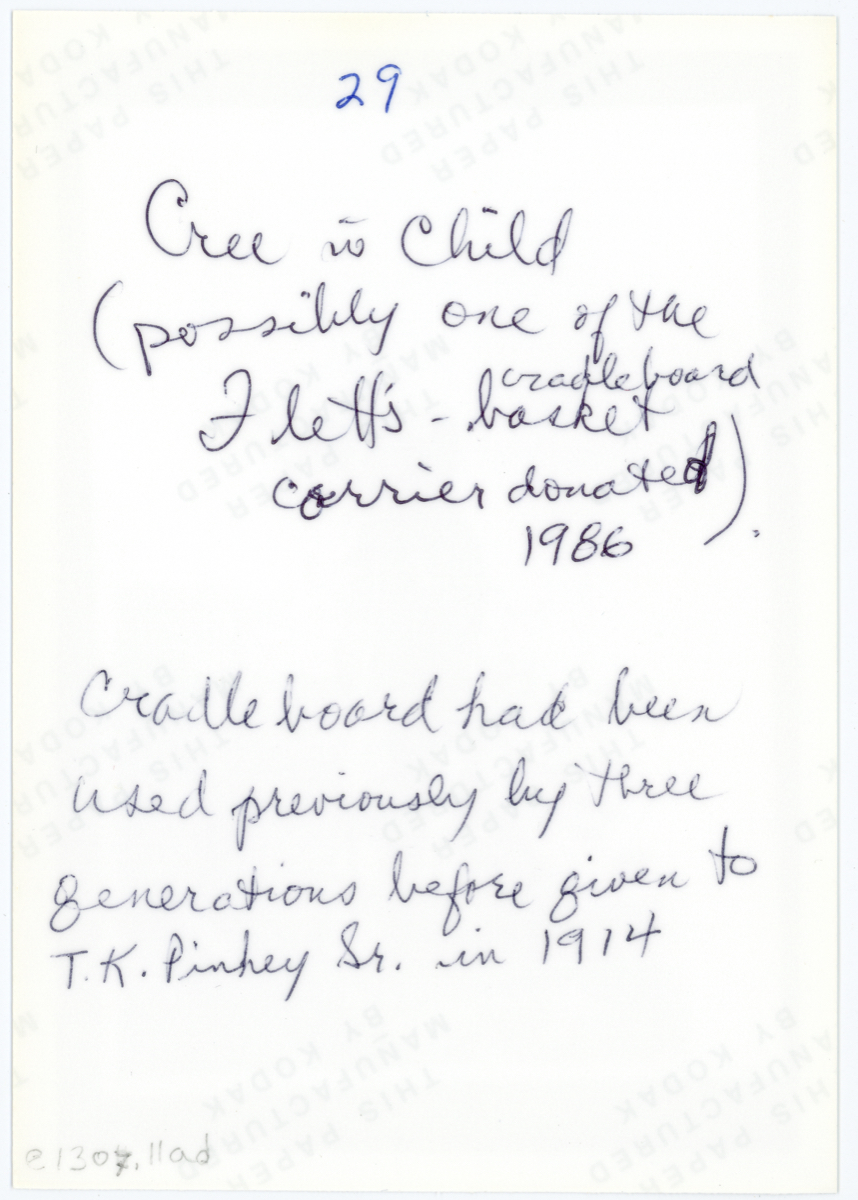 29
Cree w̄ Child
(possibly one of the
cradleboard
Flett's - basket
carrier donated).
1986
Cradle board had been
used previously by three
generations before given to
T.K. Pinhey Sr. in 1914
e1307.11ad
THIS PAPER
MANUFACTURED
BY KODAK